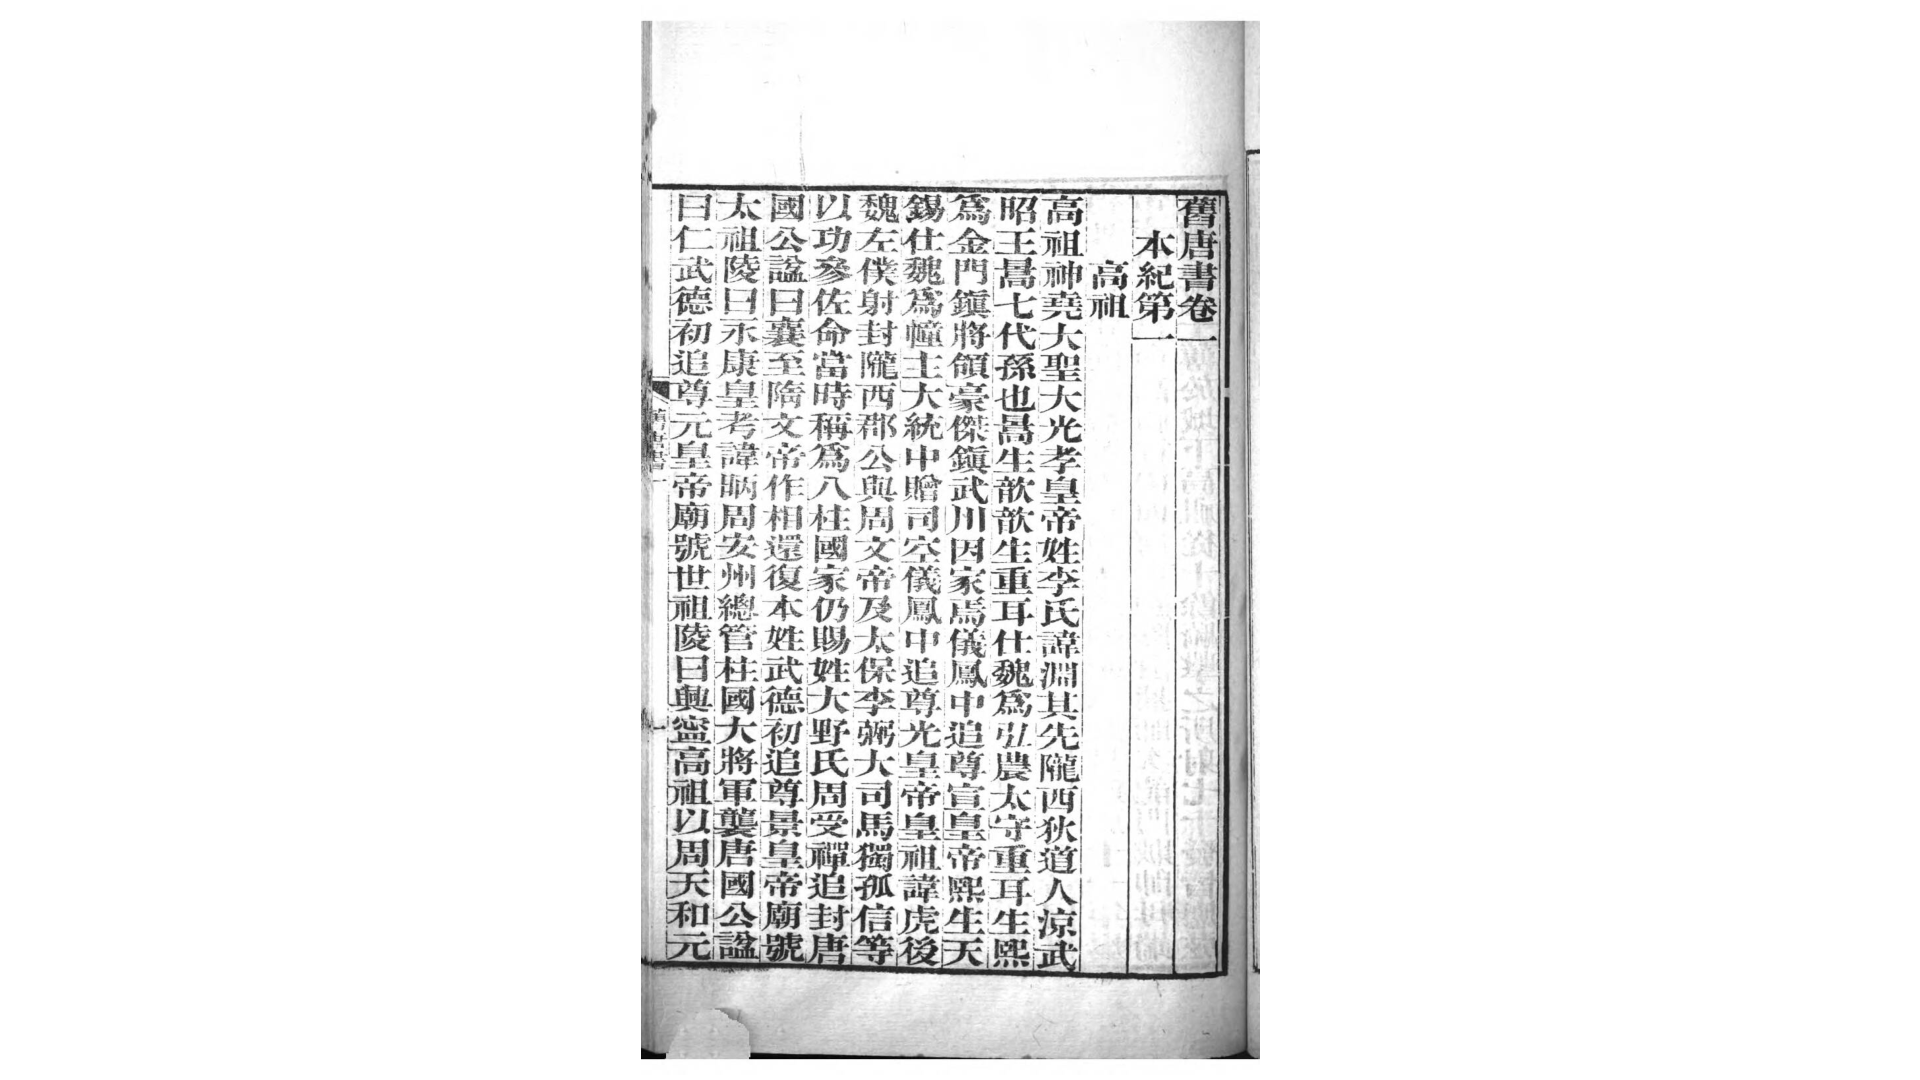 舊唐書卷一
本紀第一
高祖
高祖神堯大聖大光孝皇帝姓李氏諱淵其先隴西狄道人涼武
昭王暠七代孫也暠生歆歆生重耳仕魏爲弘農太守重耳生熙
爲金門鎭將領豪傑鎭武川因家焉儀鳳中追尊宣皇帝熙生天
錫仕魏爲幢主大統中贈司空儀鳳中追尊光皇帝皇祖諱虎後
魏左僕射封隴西郡公與周文帝及太保李弼大司馬獨孤信等
以功參佐命當時稱爲八柱國家仍賜姓大野氏周受禪追封唐
國公諡曰襄至隋文帝作相還復本姓武德初追尊景皇帝廟號
太祖陵曰永康皇考諱昞周安州總管柱國大將軍襲唐國公諡
曰仁武德初追尊元皇帝廟號世祖陵曰興寧高祖以周天和元
舊唐書一
一